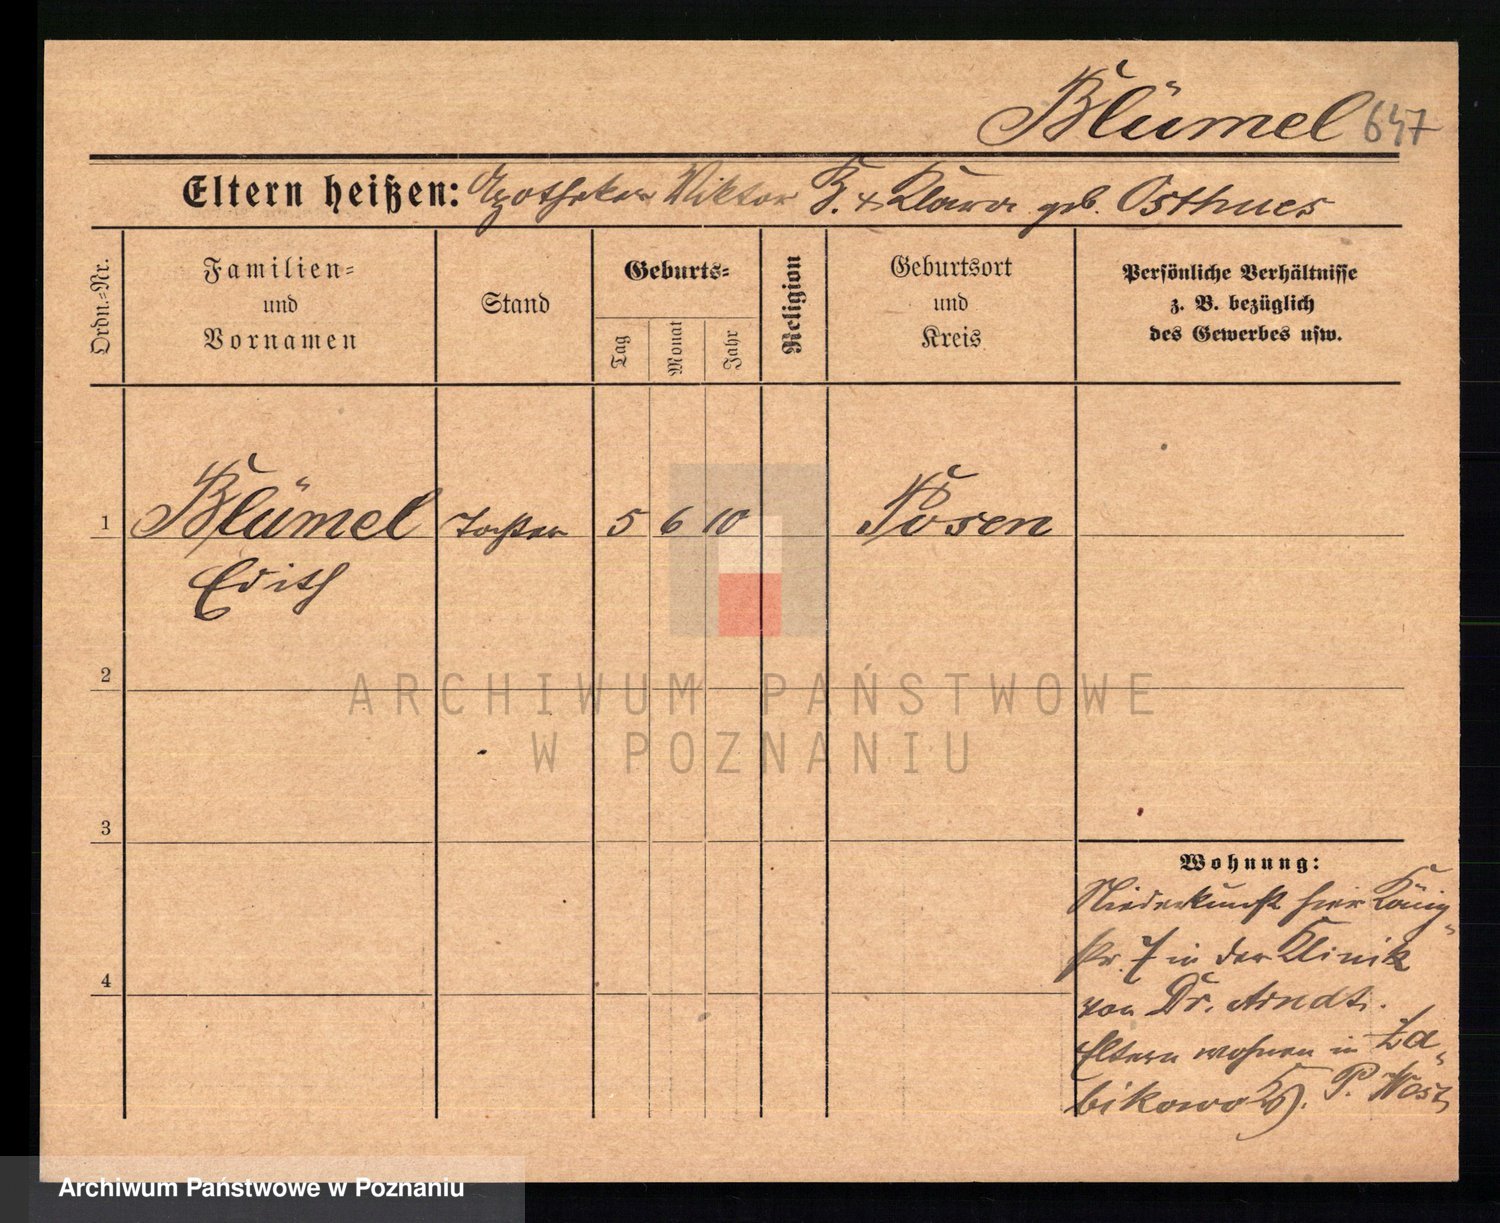 Blümel 647
Eltern heißen: Apotheker Viktor B. + Klara geb. Osthues
Ordn.=Nr.
Familien=
und
Vornamen
Stand
Geburts=
Tag
Monat
Jahr
Religion
Geburtsort
und
Kreis
Persönliche Verhältnisse
z. B. bezüglich
des Gewerbes usw.
1 Blümel Tochter 5 6 10 Posen
Edith
2
3
4
Wohnung:
Niederkunft hier König-
str. 7 in der Klinik
von Dr. Arndt.
Eltern wohnen in Za-
bikowo Kr. P. West
ARCHIWUM PAŃSTWOWE
W POZNANIU
Archiwum Państwowe w Poznaniu